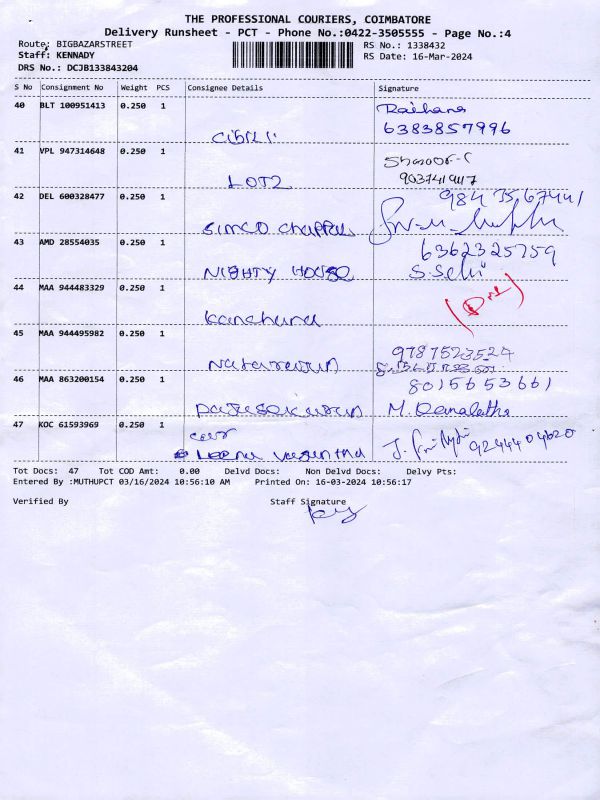 THE PROFESSIONAL COURIERS, COIMBATORE
Delivery Runsheet - PCT - Phone No.:0422-3505555 - Page No.:4
Route: BIGBAZARSTREET
RS No.: 1338432
Staff: KENNADY
RS Date: 16-Mar-2024
DRS No.: DCJB133843204
S No Consignment No Weight PCS Consignee Details Signature
40 BLT 100951413 0.250 1
Raihana
6383857996
41 VPL 947314648 0.250 1
LOT2
42 DEL 600328477 0.250 1
SIMCO chappal
43 AMD 28554035 0.250 1
6362325759
NIGHTY HOUSE
S.Selvi
44 MAA 944483329 0.250 1
Kanchana
45 MAA 944495982 0.250 1
9787523524
Natarajan
46 MAA 863200154 0.250 1
8015653661
Rajasekaran
47 KOC 61593969 0.250 1
Leena Vasantha
9244404620
Tot Docs: 47 Tot COD Amt: 0.00 Delvd Docs: Non Delvd Docs: Delvy Pts:
Entered By :MUTHUPCT 03/16/2024 10:56:10 AM Printed On: 16-03-2024 10:56:17
Verified By
Staff Signature